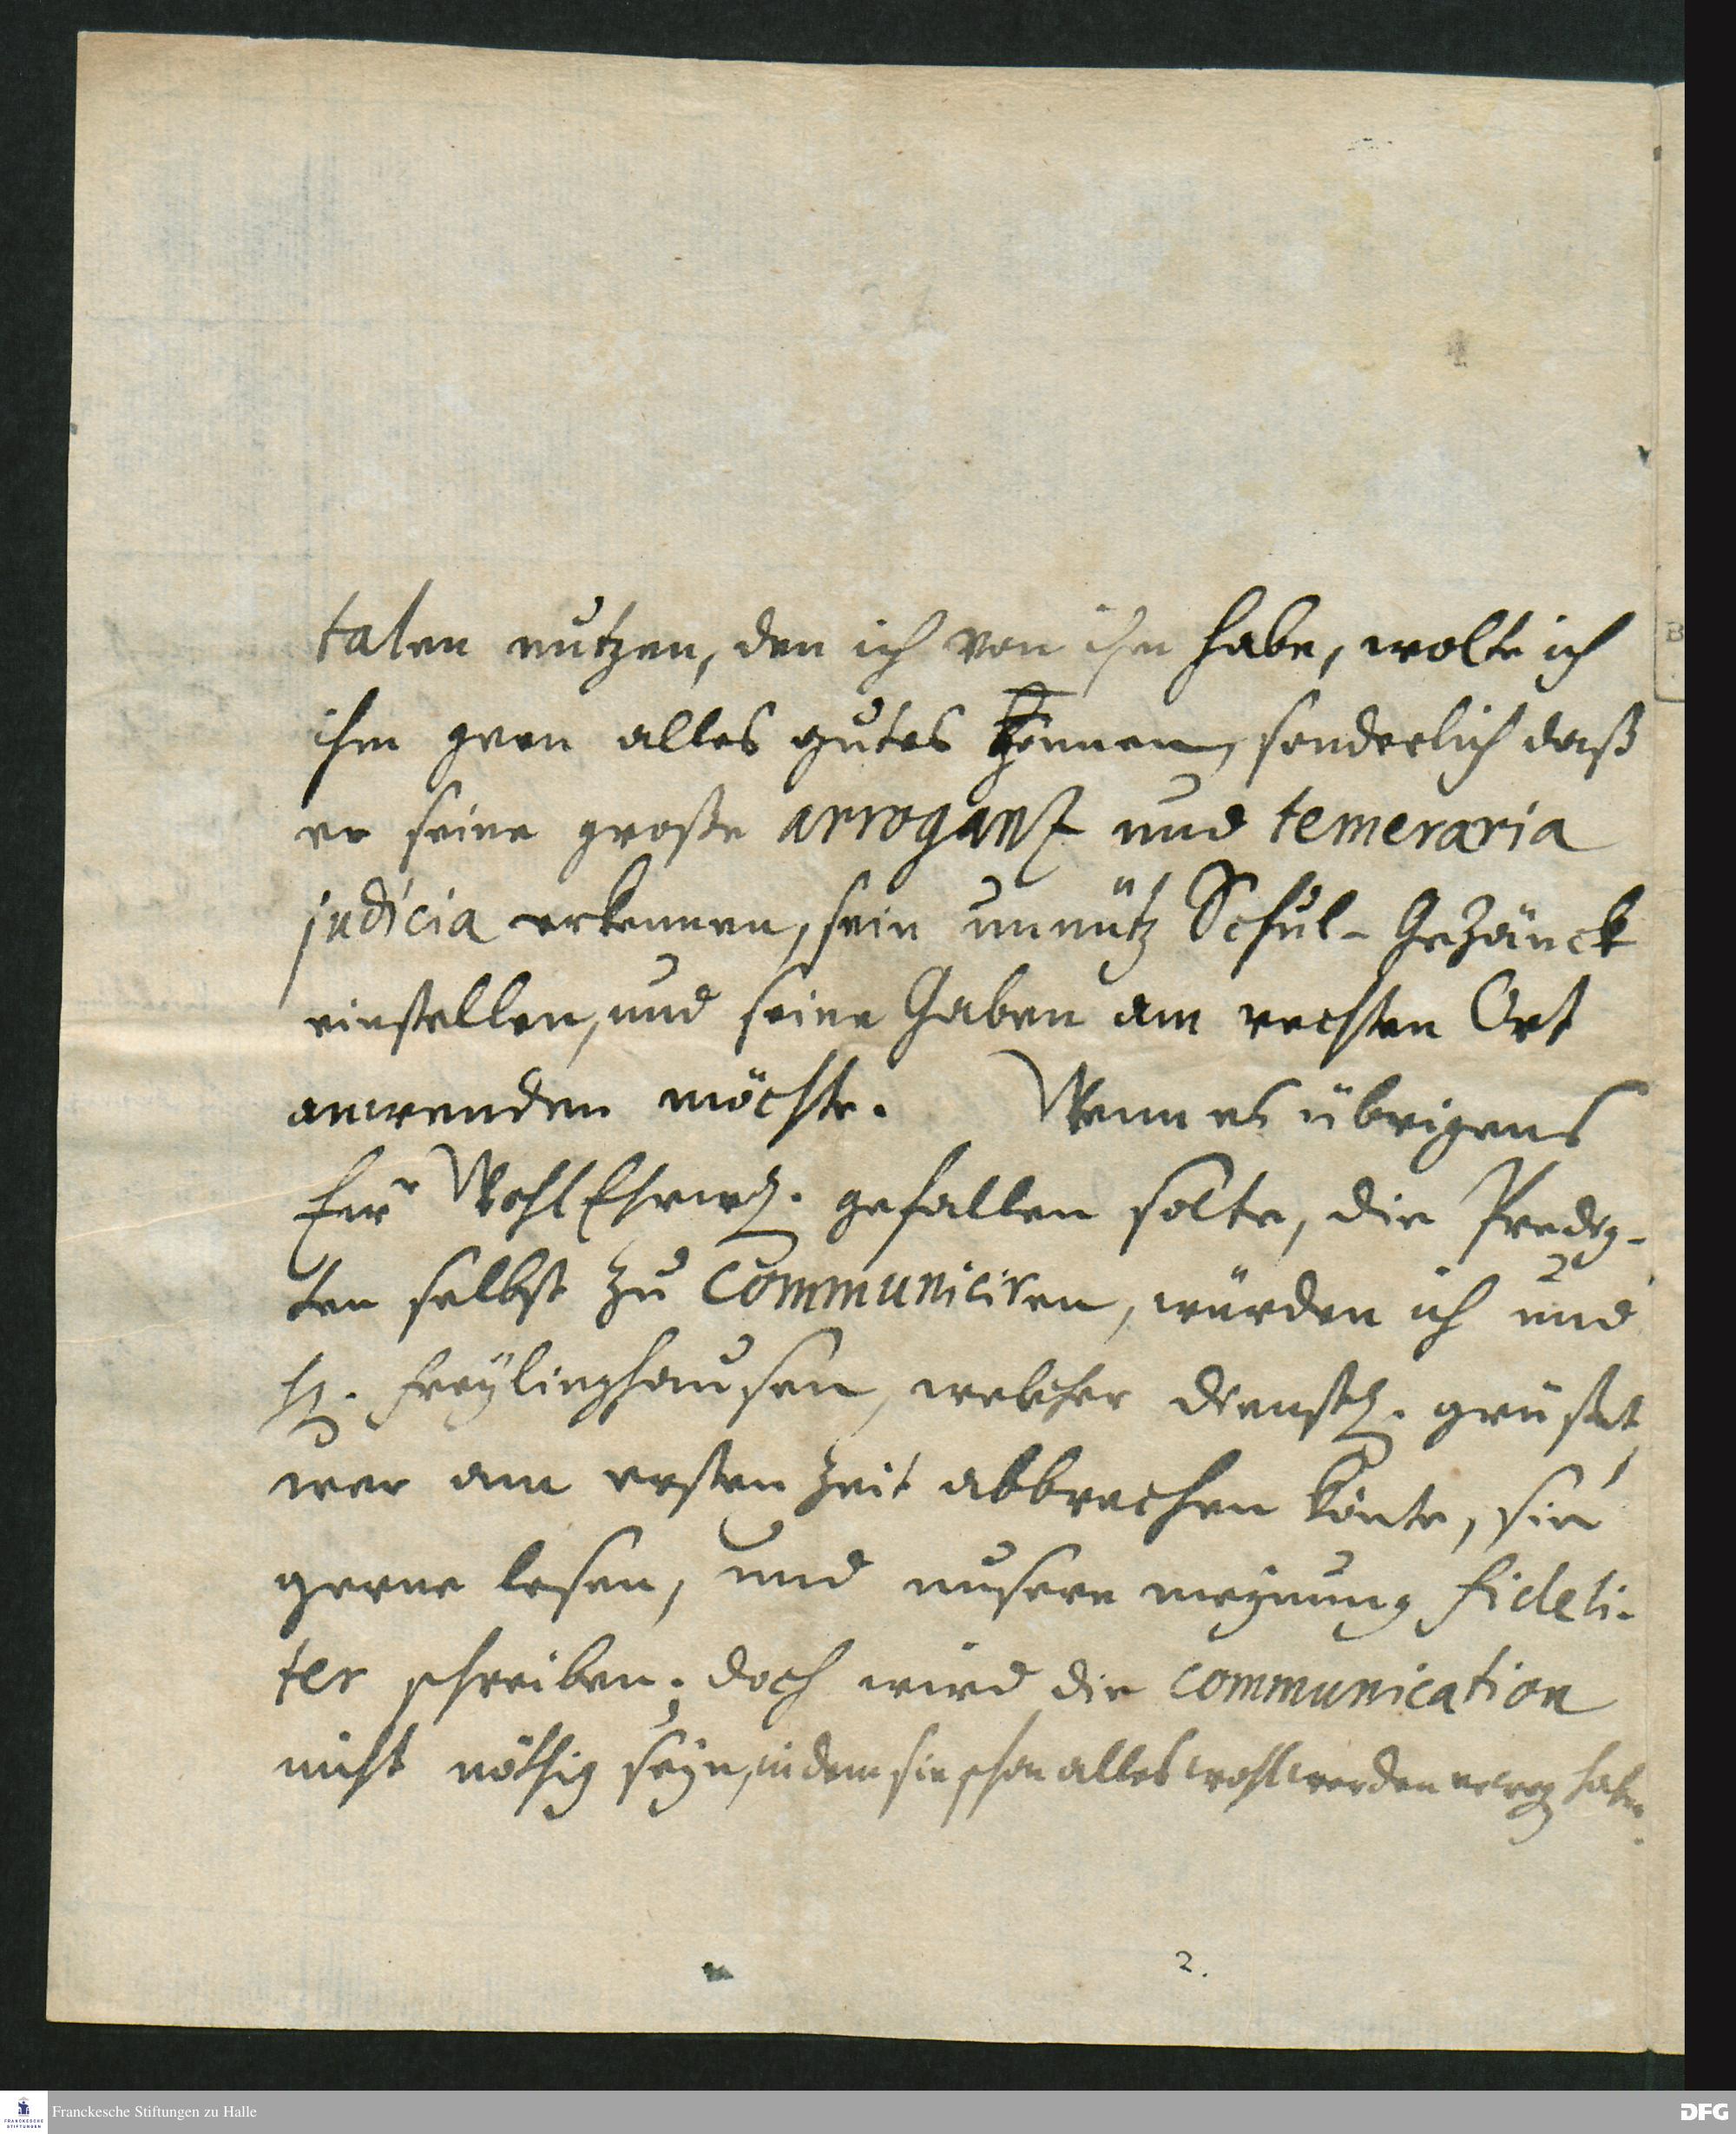 talen nutzen, den ich von ihm habe, wolte ich
ihm gern alles gutes gönnen, sonderlich daß
er seine große arroganz und temeraria
judicia erkennen, sein unnütz Schul-Gezänck
einstellen, und seine Gaben am rechten Ort
anwenden möchte. Wenn es übrigens
Eur WohlEhrwd. gefallen solte, die Predig-
ten selbst zu communiciren, würden ich und
H. Freylinghausen, welcher dienstl. grüßet,
wer am ersten Zeit abbrechen könte, sie
gerne lesen, und unsere meynung fideli-
ter schreiben; doch wird die communication
nicht nöthig seyn, indem sie schon alles wohl werden haben
2.
Franckesche Stiftungen zu Halle
DFG